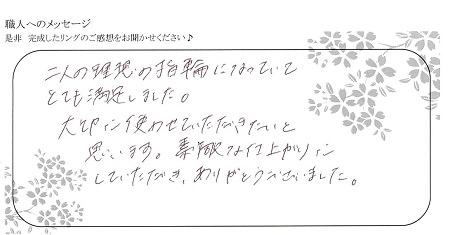 職人へのメッセージ
是非 完成したリングのご感想をお聞かせください♪
二人の理想の指輪になっていて
とても満足しました。
大切に使わせていただきたいと
思います。素敵な仕上がりに
していただき、ありがとうございました。